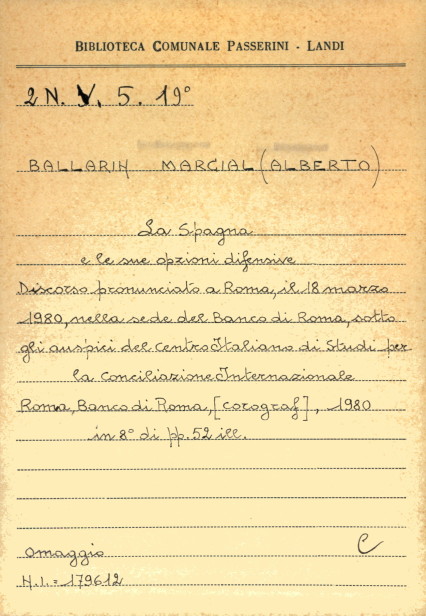 BIBLIOTECA COMUNALE PASSERINI - LANDI
2 N. V. 5. 19°
BALLARIN MARCIAL (ALBERTO)
La Spagna
e le sue opzioni difensive
Discorso pronunciato a Roma, il 18 marzo
1980, nella sede del Banco di Roma, sotto
gli auspici del Centro Italiano di Studi per
la Conciliazione Internazionale
Roma, Banco di Roma, [Cotograf], 1980
in 8° di pp. 52 ill.
Omaggio C
N.I. = 179612